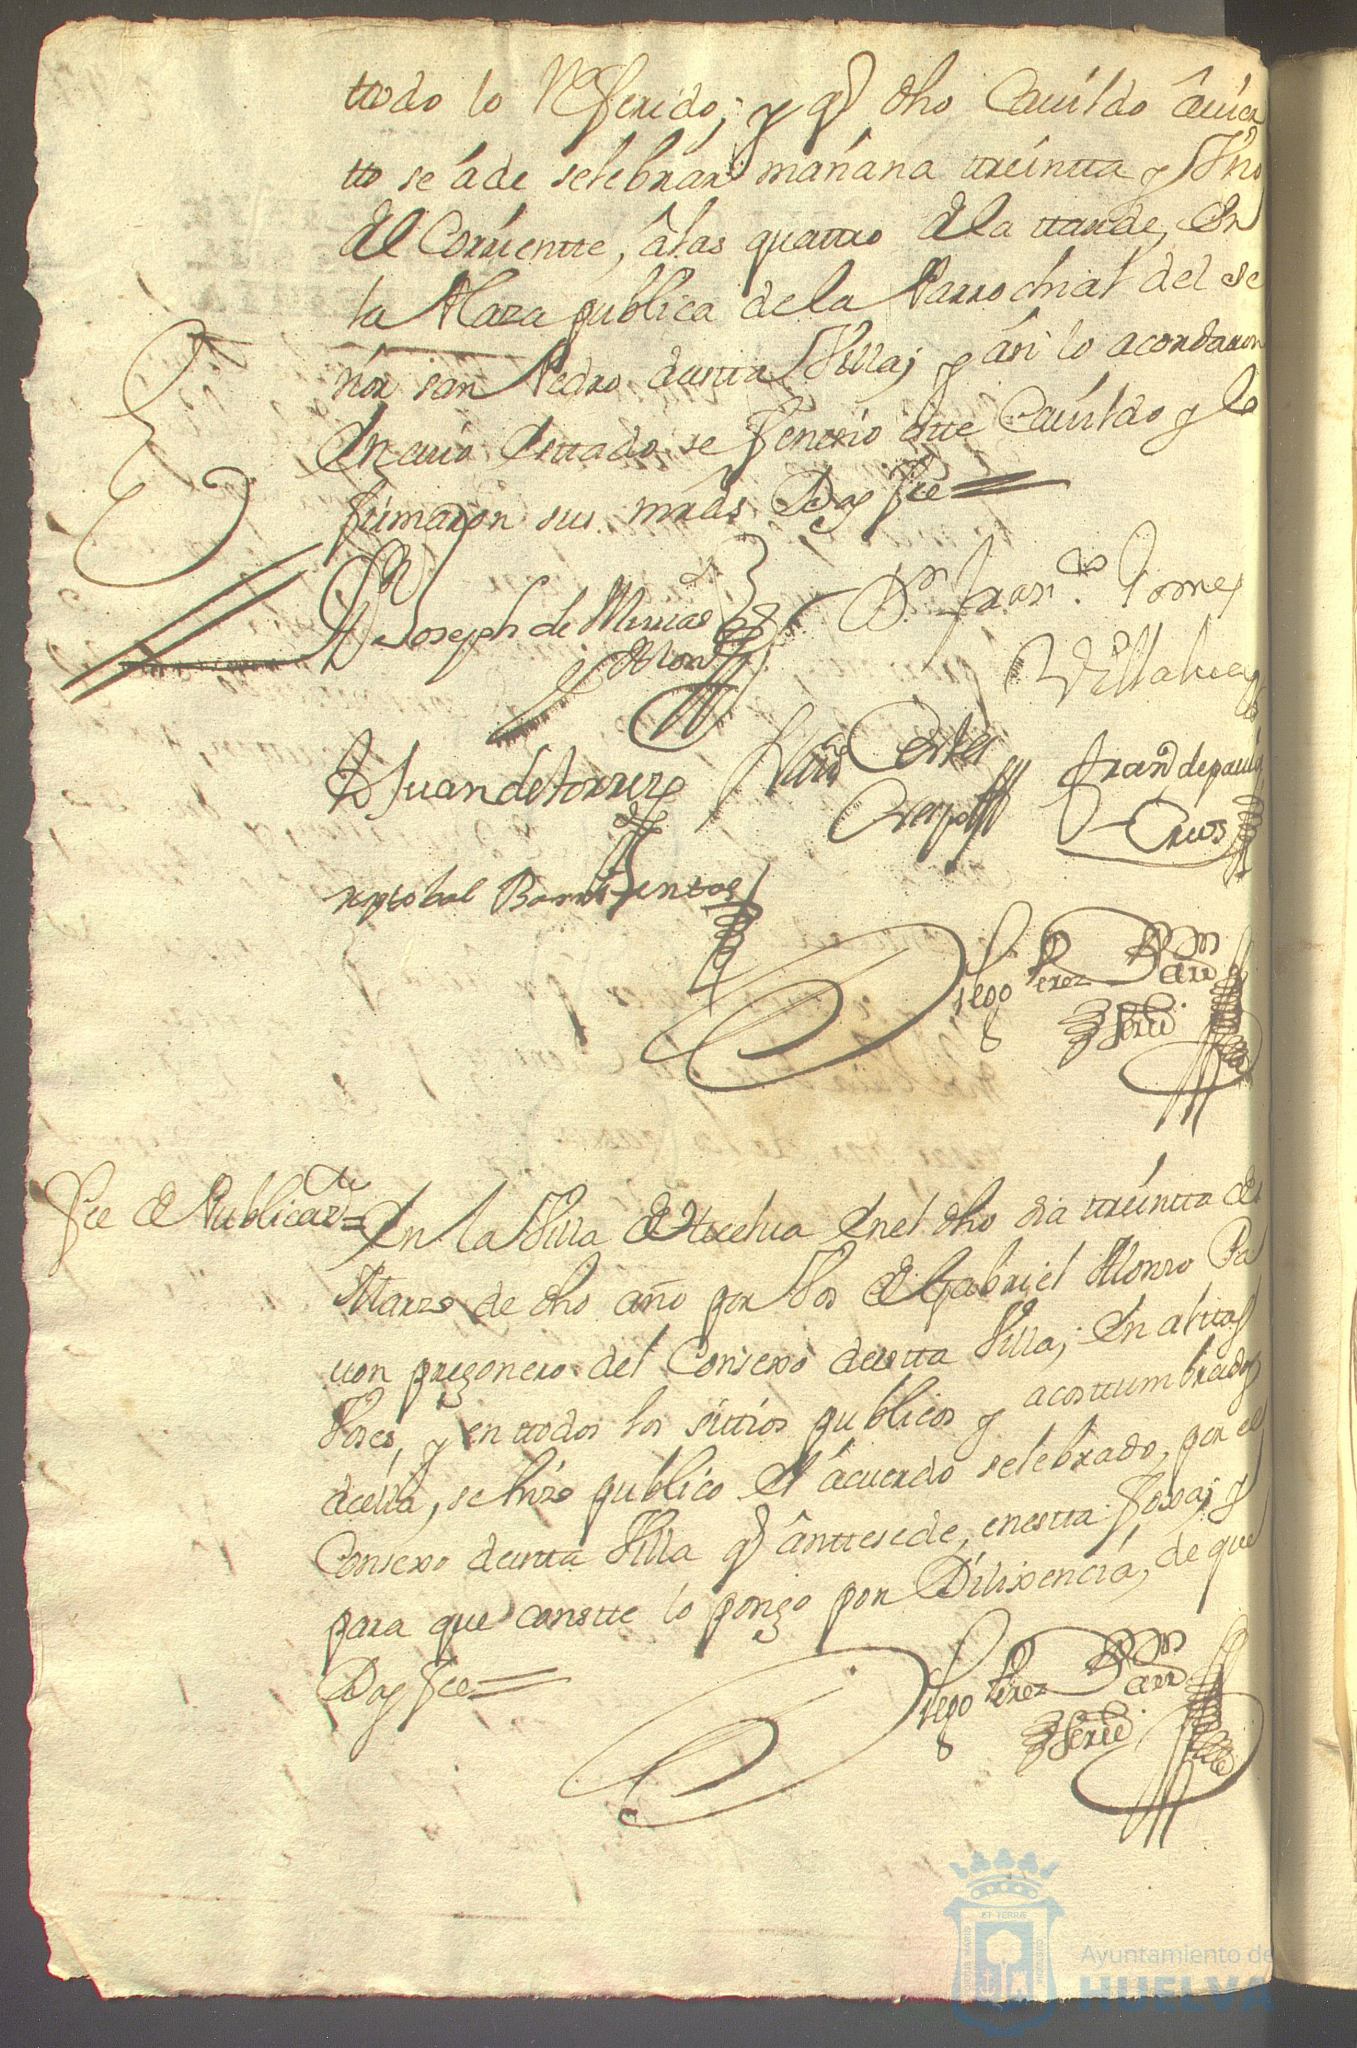 ttodo lo Referido; y qe dho Cauildo âuier
tto se á de selebrár mañana ttreintta y Vno
del Corrientte, âlas quattro dela ttarde, En
la Plaza publica dela Parrochial del se
ñor san Pedro destta Villa; y ási lo acordaron
En cuio Esttado se feneció estte Cauildo y lo
firmaron sus mrds Doy fee=
Dn Joseph de
Dn Franco Gomez
Villa
Juan de torres
Luis Cortes
Crespo
Frano de paula
Cruz
Xptobal Barrientos
Diego Perez
Fee de Publicazn= En la Villa de Huelua En el dho dia ttreintta de
Marzo de dho año por Vos de Gabriel Alonzo Pa
uon pregonero del Consexo destta Villa; En alttas
Voses, y en ttodos los sittios publicos y acosttumbrados
de ella, se hizo publico El ácuerdo selebrado, por el
Consexo destta Villa qe ânttesede, en estta foxa; y
para que constte lo pongo por Dilixencia, de que
Doy fee=
Diego Perez
Ayuntamiento de
HUELVA